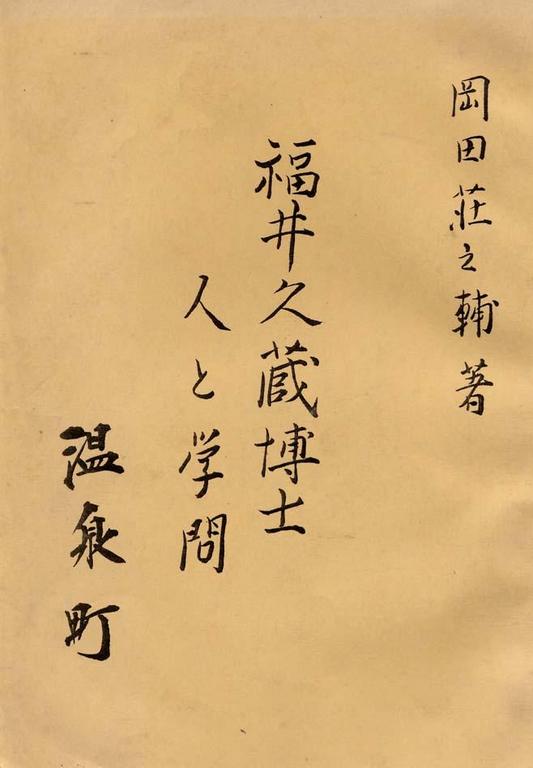 岡田荘之輔著
福井久蔵博士
人と学問
温泉町